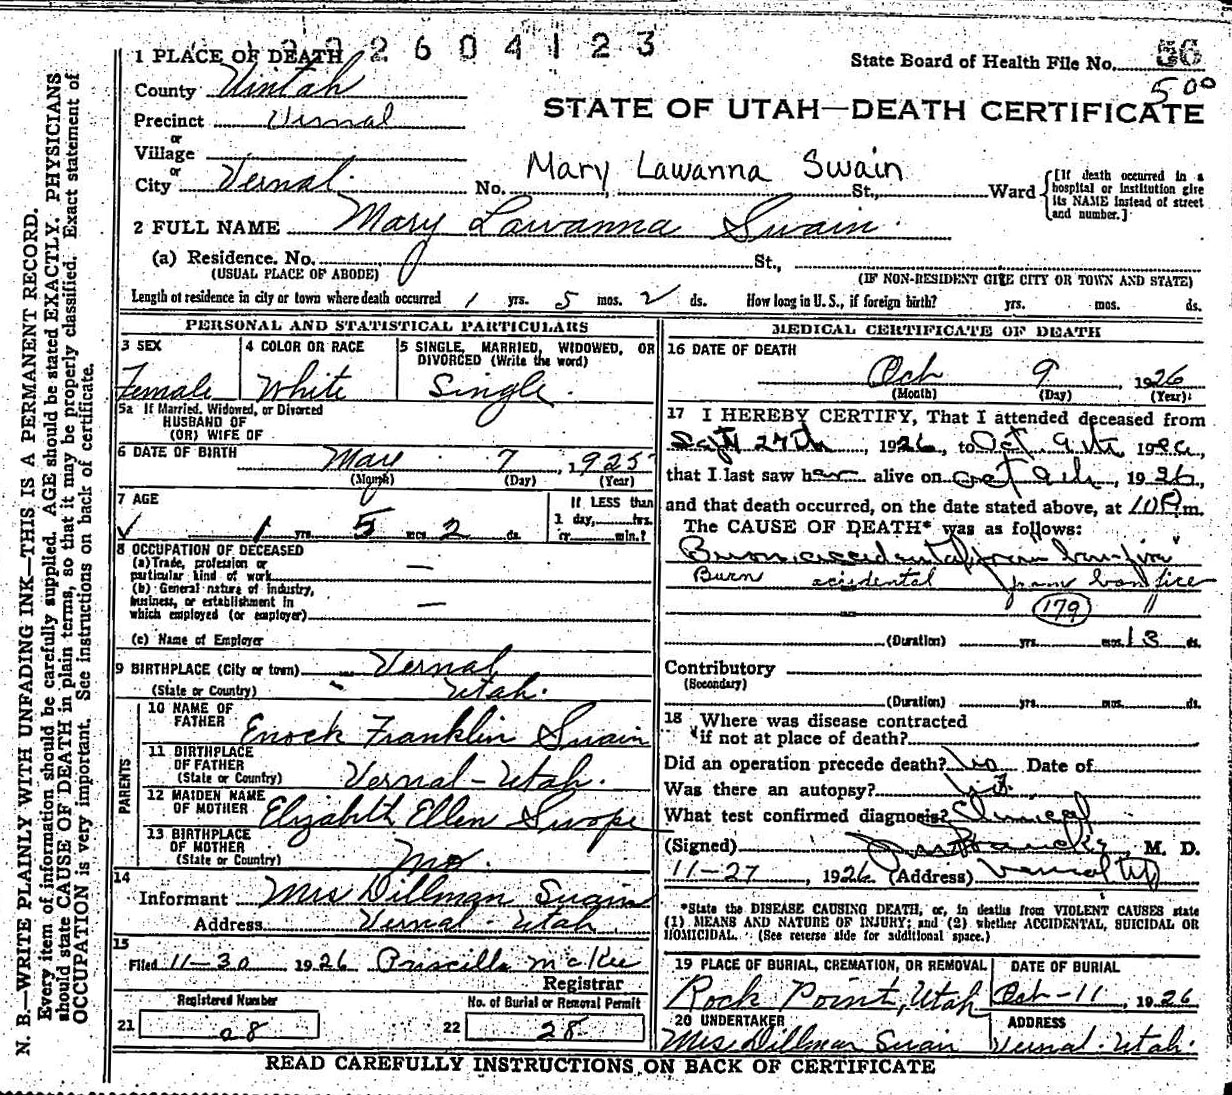 N. B.—WRITE PLAINLY WITH UNFADING INK—THIS IS A PERMANENT RECORD.
Every item of information should be carefully supplied. AGE should be stated EXACTLY. PHYSICIANS
should state CAUSE OF DEATH in plain terms, so that it may be properly classified. Exact statement of
OCCUPATION is very important. See instructions on back of certificate.
2604123
1 PLACE OF DEATH
State Board of Health File No. 56
500
County Uintah
STATE OF UTAH—DEATH CERTIFICATE
Precinct Vernal
or
Village
or
City Vernal No. Mary Lawanna Swain St., Ward
[If death occurred in a
hospital or institution give
its NAME instead of street
and number.]
2 FULL NAME Mary Lawanna Swain
(a) Residence. No. St.,
(USUAL PLACE OF ABODE) (IF NON-RESIDENT GIVE CITY OR TOWN AND STATE)
Length of residence in city or town where death occurred 1 yrs. 5 mos. 2 ds. How long in U. S., if foreign birth? yrs. mos. ds.
PERSONAL AND STATISTICAL PARTICULARS
3 SEX
Female
4 COLOR OR RACE
White
5 SINGLE, MARRIED, WIDOWED, OR
DIVORCED (Write the word)
Single
5a If Married, Widowed, or Divorced
HUSBAND OF
(OR) WIFE OF
6 DATE OF BIRTH May 7, 1925
(Month) (Day) (Year)
7 AGE
1 yrs. 5 mos. 2 ds.
If LESS than
1 day, hrs.
or min.?
8 OCCUPATION OF DECEASED
(a) Trade, profession or
particular kind of work —
(b) General nature of industry,
business, or establishment in
which employed (or employer) —
(c) Name of Employer
9 BIRTHPLACE (City or town) Vernal
(State or Country) Utah.
PARENTS
10 NAME OF
FATHER Enock Franklin Swain
11 BIRTHPLACE
OF FATHER
(State or Country) Vernal - Utah.
12 MAIDEN NAME
OF MOTHER Elizabeth Ellen Swope
13 BIRTHPLACE
OF MOTHER
(State or Country) Mo.
14
Informant Mrs Dillman Swain
Address Vernal - Utah
15
Filed 11-30 1926 Priscilla McKee
Registrar
Registered Number
21 28
No. of Burial or Removal Permit
22 28
MEDICAL CERTIFICATE OF DEATH
16 DATE OF DEATH
Oct 9, 1926
(Month) (Day) (Year)
17 I HEREBY CERTIFY, That I attended deceased from
Sept 27th, 1926, to Oct 9th, 1926,
that I last saw her alive on Oct 9th, 1926,
and that death occurred, on the date stated above, at 10 P m.
The CAUSE OF DEATH* was as follows:
Burn, accidental from bon-fire
Burn accidental from bon fire
179 11
(Duration) yrs. mos. 13 ds.
Contributory
(Secondary)
(Duration) yrs. mos. ds.
18 Where was disease contracted
if not at place of death?
Did an operation precede death? No Date of
Was there an autopsy?
What test confirmed diagnosis? Clinical
(Signed) , M. D.
11-27, 1926 (Address) Vernal Ut
*State the DISEASE CAUSING DEATH, or, in deaths from VIOLENT CAUSES state
(1) MEANS AND NATURE OF INJURY; and (2) whether ACCIDENTAL, SUICIDAL OR
HOMICIDAL. (See reverse side for additional space.)
19 PLACE OF BURIAL, CREMATION, OR REMOVAL
Rock Point, Utah
DATE OF BURIAL
Oct-11, 1926
20 UNDERTAKER
Mrs Dillman Swain
ADDRESS
Vernal - Utah.
READ CAREFULLY INSTRUCTIONS ON BACK OF CERTIFICATE